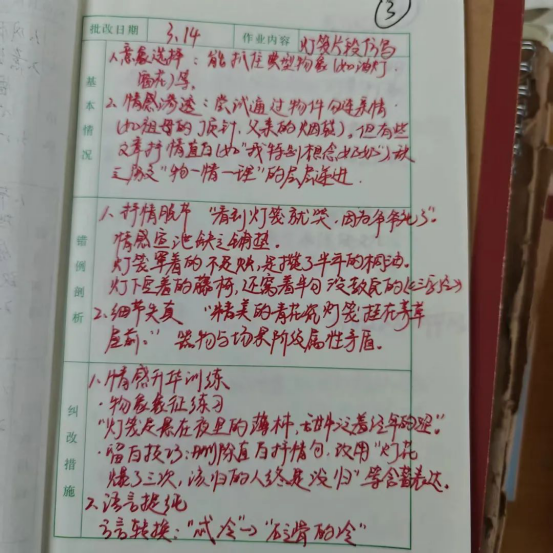 ③
批改日期 3.14 作业内容 灯笼片段书写
基本情况
1.意象选择：能抓住典型物象(如油灯.
窗花)等.
2.情感渗透：尝试通过物件勾连亲情.
(如祖母的顶针.父亲的烟袋),但有些
文章抒情直白(如"我特别想念奶奶")缺
乏散文"物—情—理"的层层递进.
错例剖析
1.抒情脱节 "看到灯笼就哭,因为爷爷死了".
情感宣泄缺乏铺垫.
灯笼罩着的不是烛,是攒了半年的桐油.
灯下压着的藤椅,还窝着半句没散尽的
2.细节失真 "精美的青花瓷灯笼挂在茅草
屋前." 器物与场景阶级属性矛盾.
纠改措施
1.情感升华训练
·物象象征练习
"灯笼是悬在夜里的薄柿,
·留白技巧:删除直白抒情句,改用"灯花
爆了三次,该归的人终是没归"等含蓄表达.
2.语言提纯
"→"的冷"